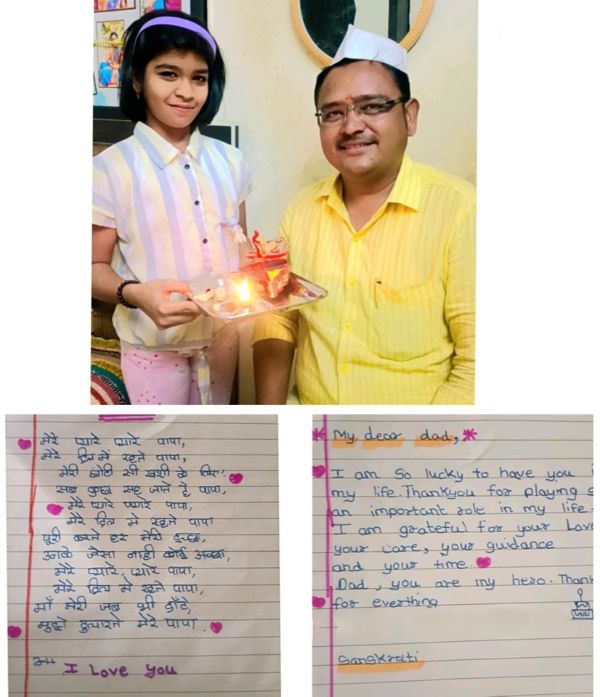 मेरे प्यारे प्यारे पापा,
मेरे दिल में रहते पापा,
मेरी छोटी सी खुशी के लिए
सब कुछ सह जाते है पापा,
मेरे प्यारे प्यारे पापा,
मेरे दिल मे रहते पापा
पूरी करते हर मेरी इच्छा
उनके जैसा नाही कोई अच्छा,
मेरे प्यारे, प्यारे पापा,
मेरे दिल मे रहते पापा,
माँ मेरी जब भी डाँटे,
मुझे दुलारते मेरे पापा.
I Love You
My dear dad,
I am So lucky to have you
my life. Thankyou for playing s
an important role in my life.
I am grateful for your Love
your care, your guidance
and your time.
Dad, you are my hero. Thank
for everthing
Sanskrati